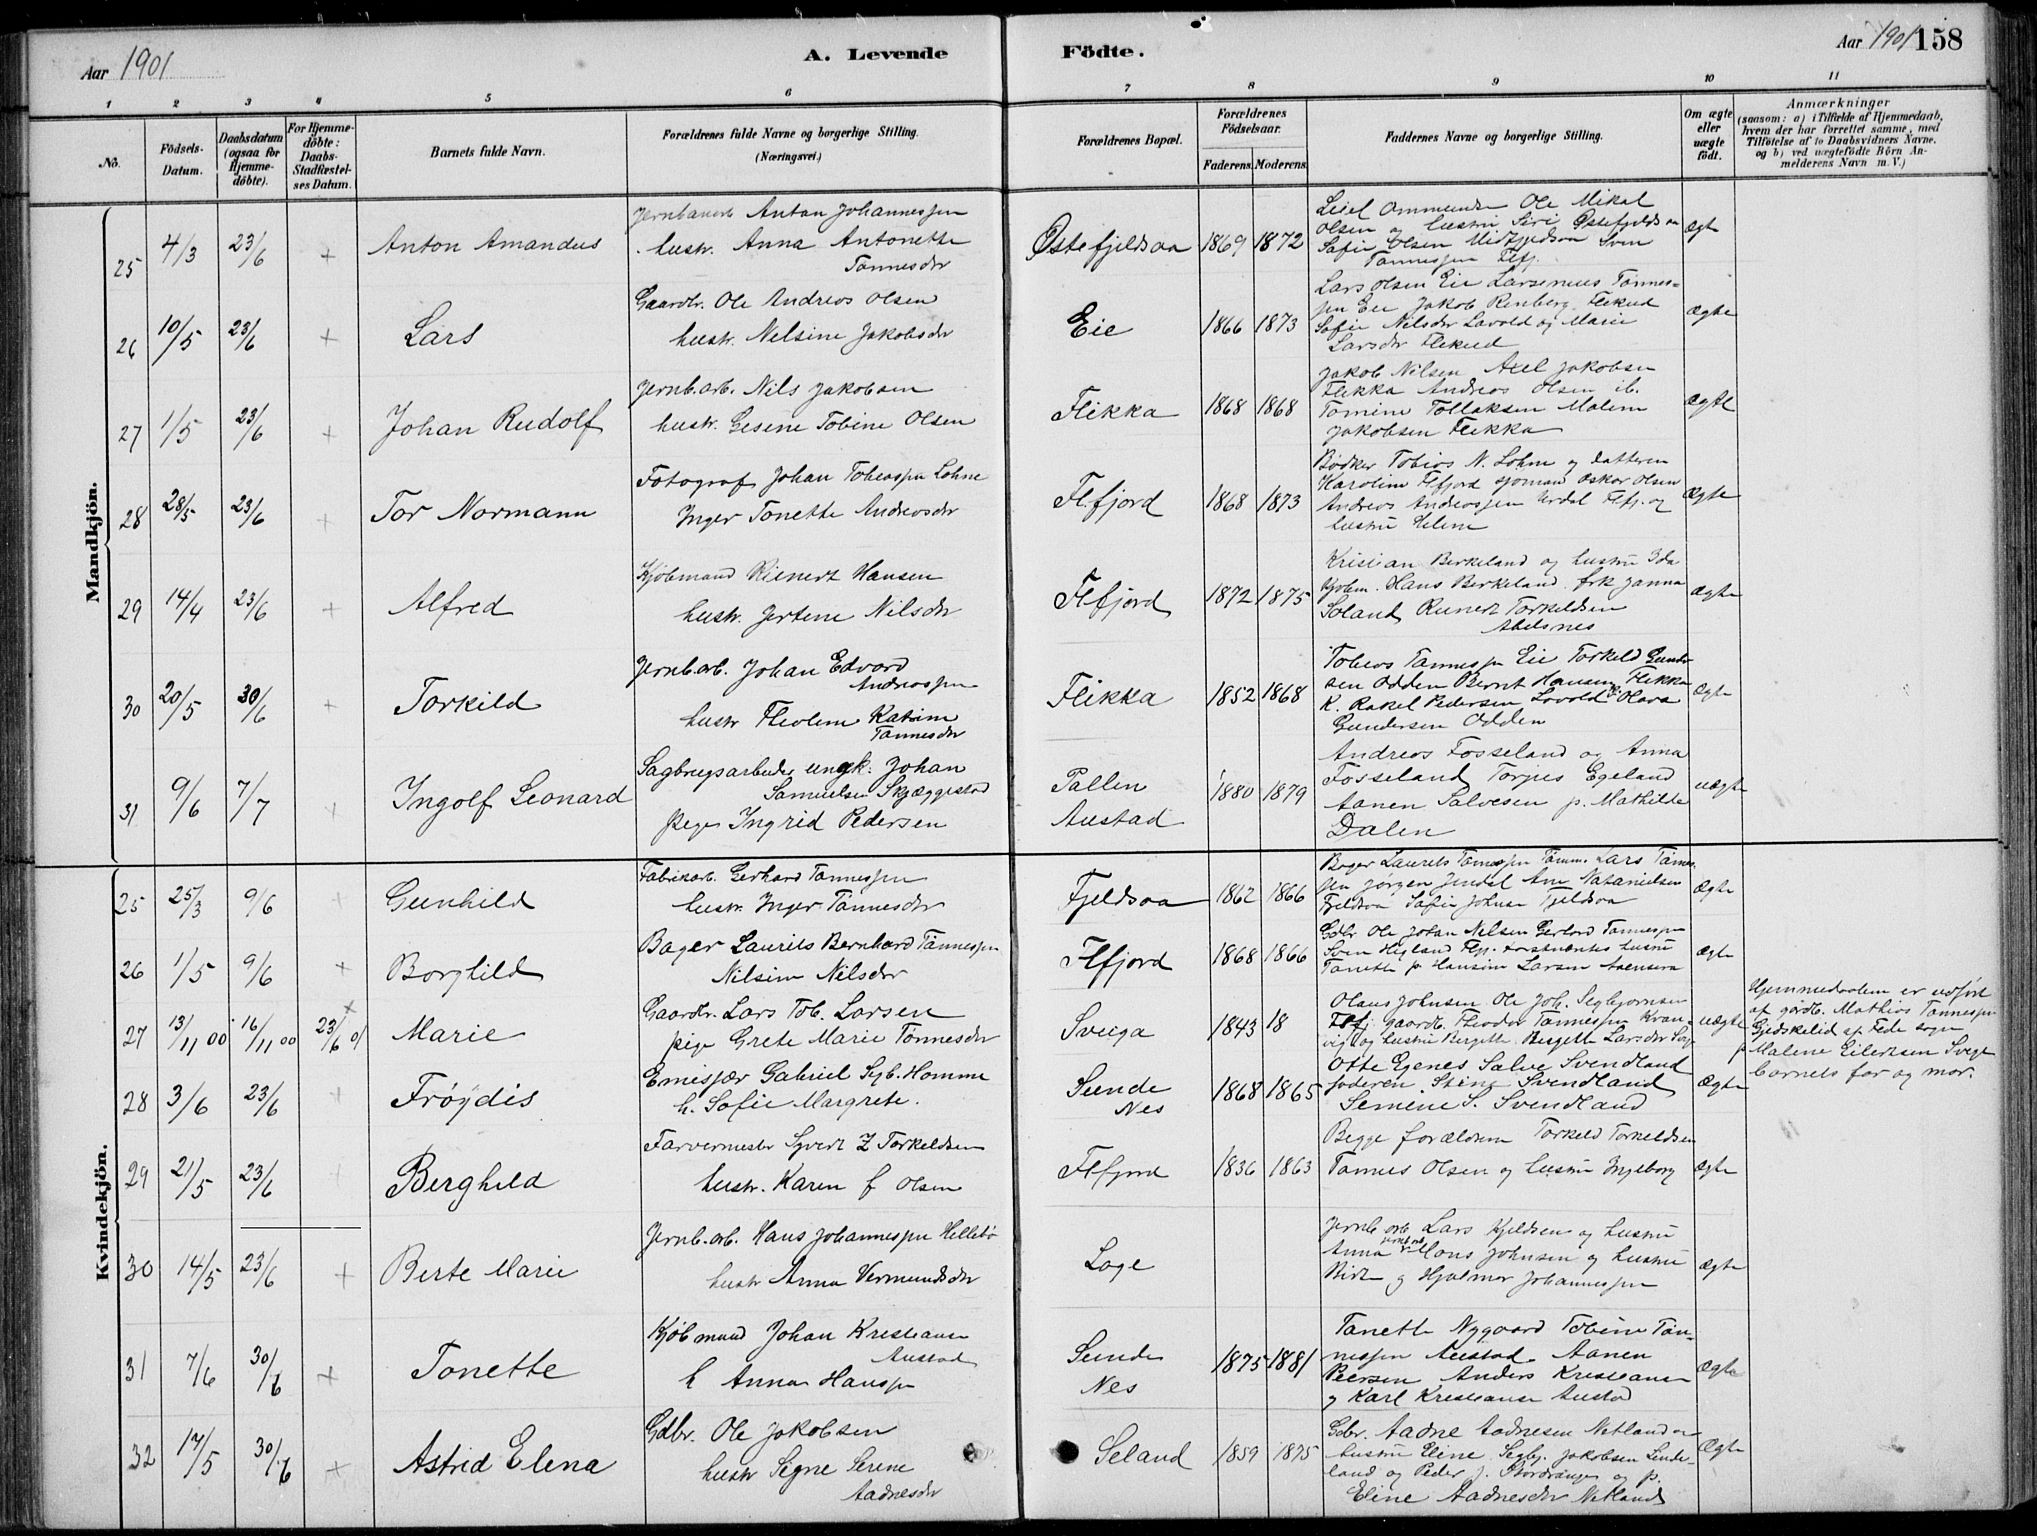 Aar 1901
A. Levende
Födte.
Aar 1901
158
1 2 3 4 5 6 7 8 9 10 11
No.
Födsels-Datum.
Daabsdatum (ogsaa for Hjemme-döbte).
For Hjemme-döbte: Daabs-Stadfæstel-ses Datum.
Barnets fulde Navn.
Forældrenes fulde Navne og borgerlige Stilling.
(Næringsvei.)
Forældrenes Bopæl.
Forældrenes Födselsaar.
Faderens. Moderens.
Faddernes Navne og borgerlige Stilling.
Om ægte eller uægte födt.
Anmærkninger
(saasom: a) i Tilfælde af Hjemmedaab,
hvem der har forrettet samme, med
Tilföielse af to Daabsvidners Navne,
og b) ved uægtefödte Börn An-
melderens Navn m. V.)
Mandkjön.
25 4/3 23/6 + Anton Amandus
Jernbanearb Anton Johannessen
hustr. Anna Antonette
Tønnesdr
Østefjeldsaa 1869 1872
Ommundsen Ole Mikal
Olsen og hustru Siri Østefjeldsaa
Sofie Olsen Midfjeldsaa Sven
Tønnessen Flfj.
ægte
26 10/5 23/6 + Lars
Gaardbr. Ole Andreas Olsen
hustr. Nelsine Jakobsdr
Eie 1866 1873
Lars Olsen Eie Larsenius Tønnes-
sen Eie Jakob Renberg, Flikeid
Sofie Nilsdr Lavold og Marie
Larsdr Flikeid
ægte
27 1/5 23/6 + Johan Rudolf
Jernb.arb. Nils Jakobsen
hustr. Gesine Tobine Olsen
Flikka 1868 1868
Jakob Nilsen Axel Jakobsen
Flikka Andreas Olsen ib.
Tomine Tollaksen Malene
Jakobsen Flikka
ægte
28 28/5 23/6 + Tor Normann
Fotograf Johan Tobiassen Lohne
Inger Tonette Andreasdr
Flfjord 1868 1873
Bødker Tobias N. Lohne og datteren
Karoline Flfjord sjømand Oskar Olsen
Andreas Andreassen Urdal Flfj. og
hustru Helene
ægte
29 14/4 23/6 + Alfred
Kjøbmand Rienert Hansen
hustr. Jertine Nilsdr
Flfjord 1872 1875
Kristian Birkeland og hustru Ida
Kjøbm. Hans Birkeland frk Janna
Soland Reinert Torkildsen
Abelsnes
ægte
30 20/5 30/6 + Torkild
Jernb.arb. Johan Edvard
Andreassen
hustr Theoline Katrine
Tønnesdr
Flikka 1852 1868
Tobias Tønnessen Eie Torkeld Gunder
sen Odden Bernt Hansen Flikka
K. Rakel Pedersen Lovold Olava
Gundersen Odden
ægte
31 9/6 7/7 + Ingolf Leonard
Sagbrugsarbeider ungk. Johan
Samuelsen Skjæggestad
pige Ingrid Pedersen
Pallen
Austad
1880 1879
Andreas Fosseland og Anna
Fosseland Torjus Egeland
Aanen Salvesen p. Mathilde
Dalen
uægte
Kvindekjön.
25 25/3 9/6 + Gunhild
Fabrikarb. Gerhard Tønnessen
hustr. Inger Tønnesdr
Fjeldsaa 1862 1866
Bager Laurits Tønnessen Tømm. Lars Tønnes
sen Jørgen Ane Natanielsen
Fjeldsaa Sofie Johnsen Fjeldsaa
ægte
26 1/5 9/6 + Borghild
Bager Laurits Bernhard Tønnessen
Nilsine Nilsdr
Flfjord 1868 1866
Gdbr Ole Johan Nilsen Gerhard Tønnessen
Sven Høgland Flfj. hustru
Tonette p. Hansine Larsen
ægte
27 13/11 00 16/11 00 + 23/6 01 Marie
Gaardbr. Lars Tob. Larsen
pige Grete Marie Tønnesdr
Sveiga 1843 18
Olaus Johnsen Ole Joh. Sigbjørnsen
Flfj. gaardb. Theodor Tønnessen Kvan-
vig og hustru Bergette Bergette Larsdr
uægte
Hjemmedaaben er udført
af gdrb. Mathias Tønnessen
Gjedskelid af Fede sogn
p Malene Eilertsen Svege
barnets far og mor.
28 3/6 23/6 + Frøydis
Emissær Gabriel Sigb. Homme
h. Sofie Margrete.
Sunde
Nes
1868 1865
Otte Egenes Salve Svendland
faderen. Stine Svendland
Semine S. Svendland
ægte
29 21/5 23/6 + Berghild
Farvermester Syvert Z Torkeldsen
hustr. Karen f Olsen
Flfjord 1836 1863
Begge forældrene Torkeld Torkeldsen
Tønnes Olsen og hustru Ingeborg
ægte
30 14/5 23/6 + Berte Marie
Jernb.arb. Hans Johannessen Hellebø
hustr Anna Vermundsdr
Loge
Jernb arb Lars Kjeldsen og hustru
Anna jernb arb Hans Johnsen og hustru
Birte og Hjalmar Johannessen
ægte
31 7/6 30/6 + Tonette
Kjøbmand Johan Kristiansen
Austad
h Anna Hanssen
Sunde
Nes
1875 1881
Tanette Nygaard Tobine Tøn-
nessen Austad Aanen
Peersen Anders Kristiansen
og Karl Kristiansen Austad
ægte
32 17/5 30/6 + Astrid Elena
Gdbr. Ole Jakobsen
hustr Signe Serine
Aadnesdr
Seland 1859 1875
Gdbr. Aadne Aadnesen Netland og
hustru Eline Sigbj. Jakobsen Linde-
land og Peder J. Stordrange og p.
Eline Aadnesdr Netland
ægte